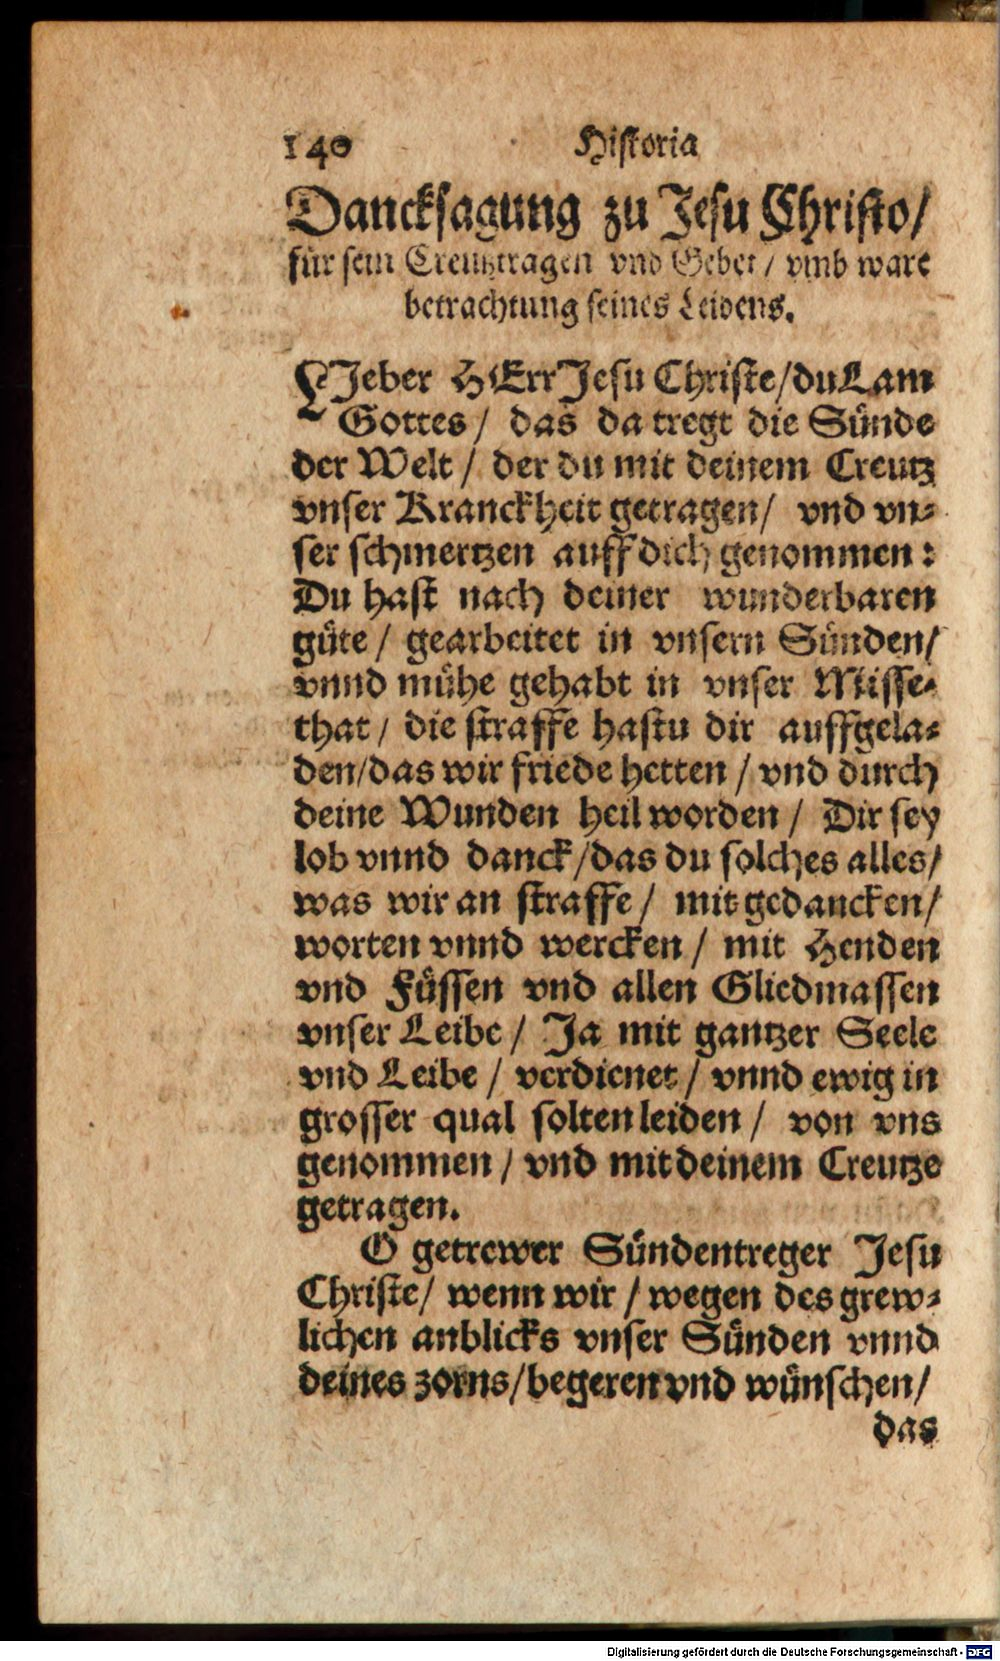 140 Historia
Dancksagung zu Jesu Christo/
für sein Creutztragen vnd Gebet/ vmb ware
betrachtung seines Leidens.
LJeber HErr Jesu Christe/du Lam
Gottes/ das da tregt die Sünde
der Welt/ der du mit deinem Creutz
vnser Kranckheit getragen/ vnd vn⸗
ser schmertzen auff dich genommen:
Du hast nach deiner wunderbaren
güte/ gearbeitet in vnsern Sünden/
vnnd mühe gehabt in vnser Misse⸗
that/ die straffe hastu dir auffgela⸗
den/das wir friede hetten/ vnd durch
deine Wunden heil worden/ Dir sey
lob vnnd danck/das du solches alles/
was wir an straffe/ mit gedancken/
worten vnnd wercken/ mit Henden
vnd Füssen vnd allen Gliedmassen
vnser Leibe/ Ja mit gantzer Seele
vnd Leibe/ verdienet/ vnnd ewig in
grosser qual solten leiden/ von vns
genommen/ vnd mit deinem Creutze
getragen.
O getrewer Sündentreger Jesu
Christe/ wenn wir/ wegen des grew⸗
lichen anblicks vnser Sünden vnnd
deines zorns/begeren vnd wünschen/
das
Digitalisierung gefördert durch die Deutsche Forschungsgemeinschaft - DFG